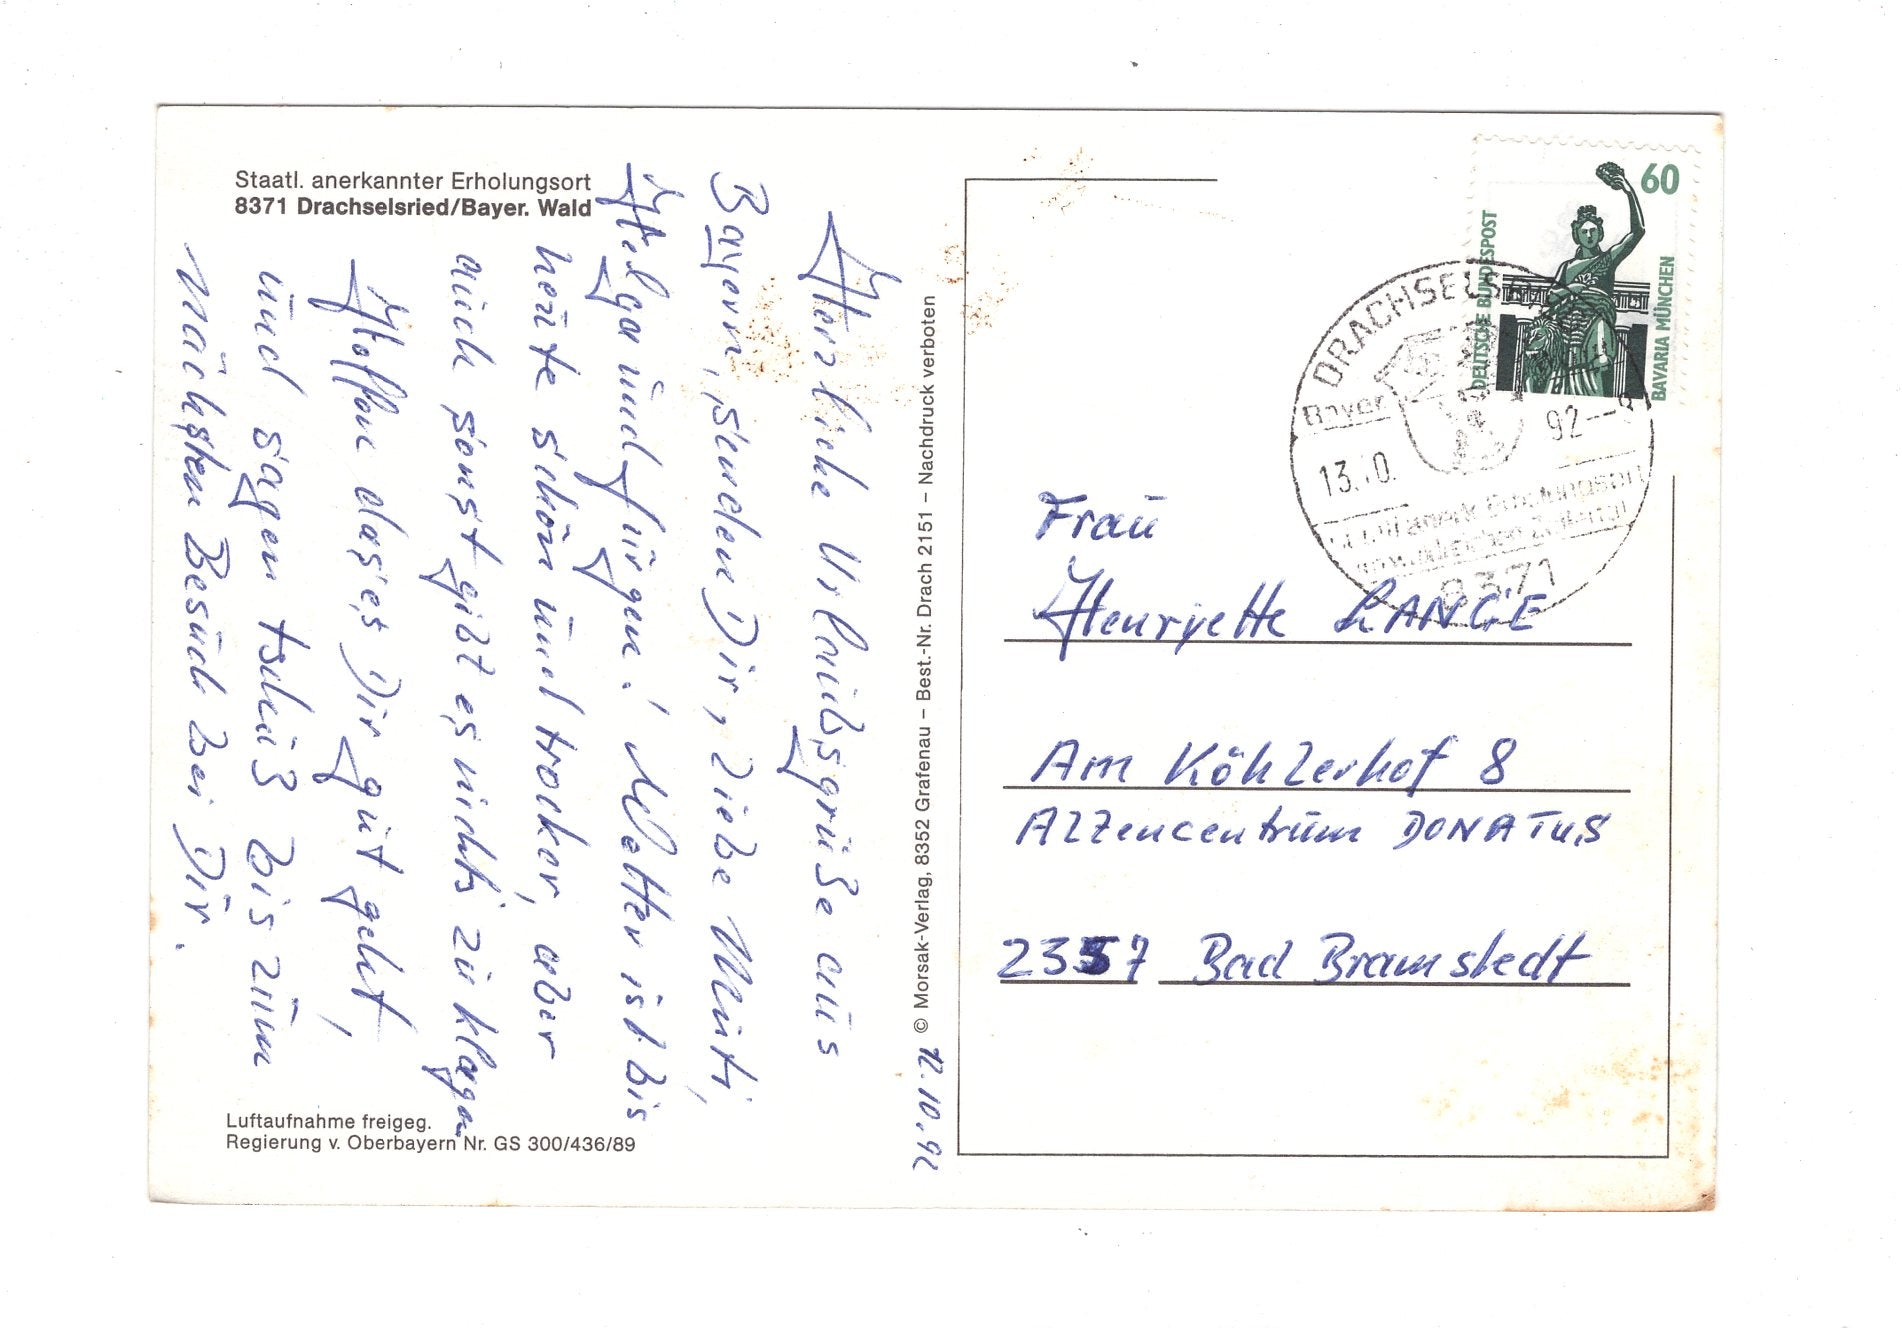 Staatl. anerkannter Erholungsort
8371 Drachselsried/Bayer. Wald
Herzliche Urlaubsgrüße aus
Bayern, senden Dir, liebe Mutti,
Helga und Jürgen! Wetter ist bis
heute schön und trocken, aber
auch sonst gibt es nichts zu klagen
Hoffen das es Dir gut geht,
und sagen tschüß bis zum
nächsten Besuch bei Dir.
Luftaufnahme freigeg.
Regierung v. Oberbayern Nr. GS 300/436/89
© Morsak-Verlag, 8352 Grafenau – Best.-Nr. Drach 2151 – Nachdruck verboten
12.10.92
60
DEUTSCHE BUNDESPOST
BAVARIA MÜNCHEN
DRACHSELS
Bayer.
13.10. 92--8
8371
Frau
Henryette LANGE
Am Köhlerhof 8
Altencentrum DONATUS
2357 Bad Bramstedt